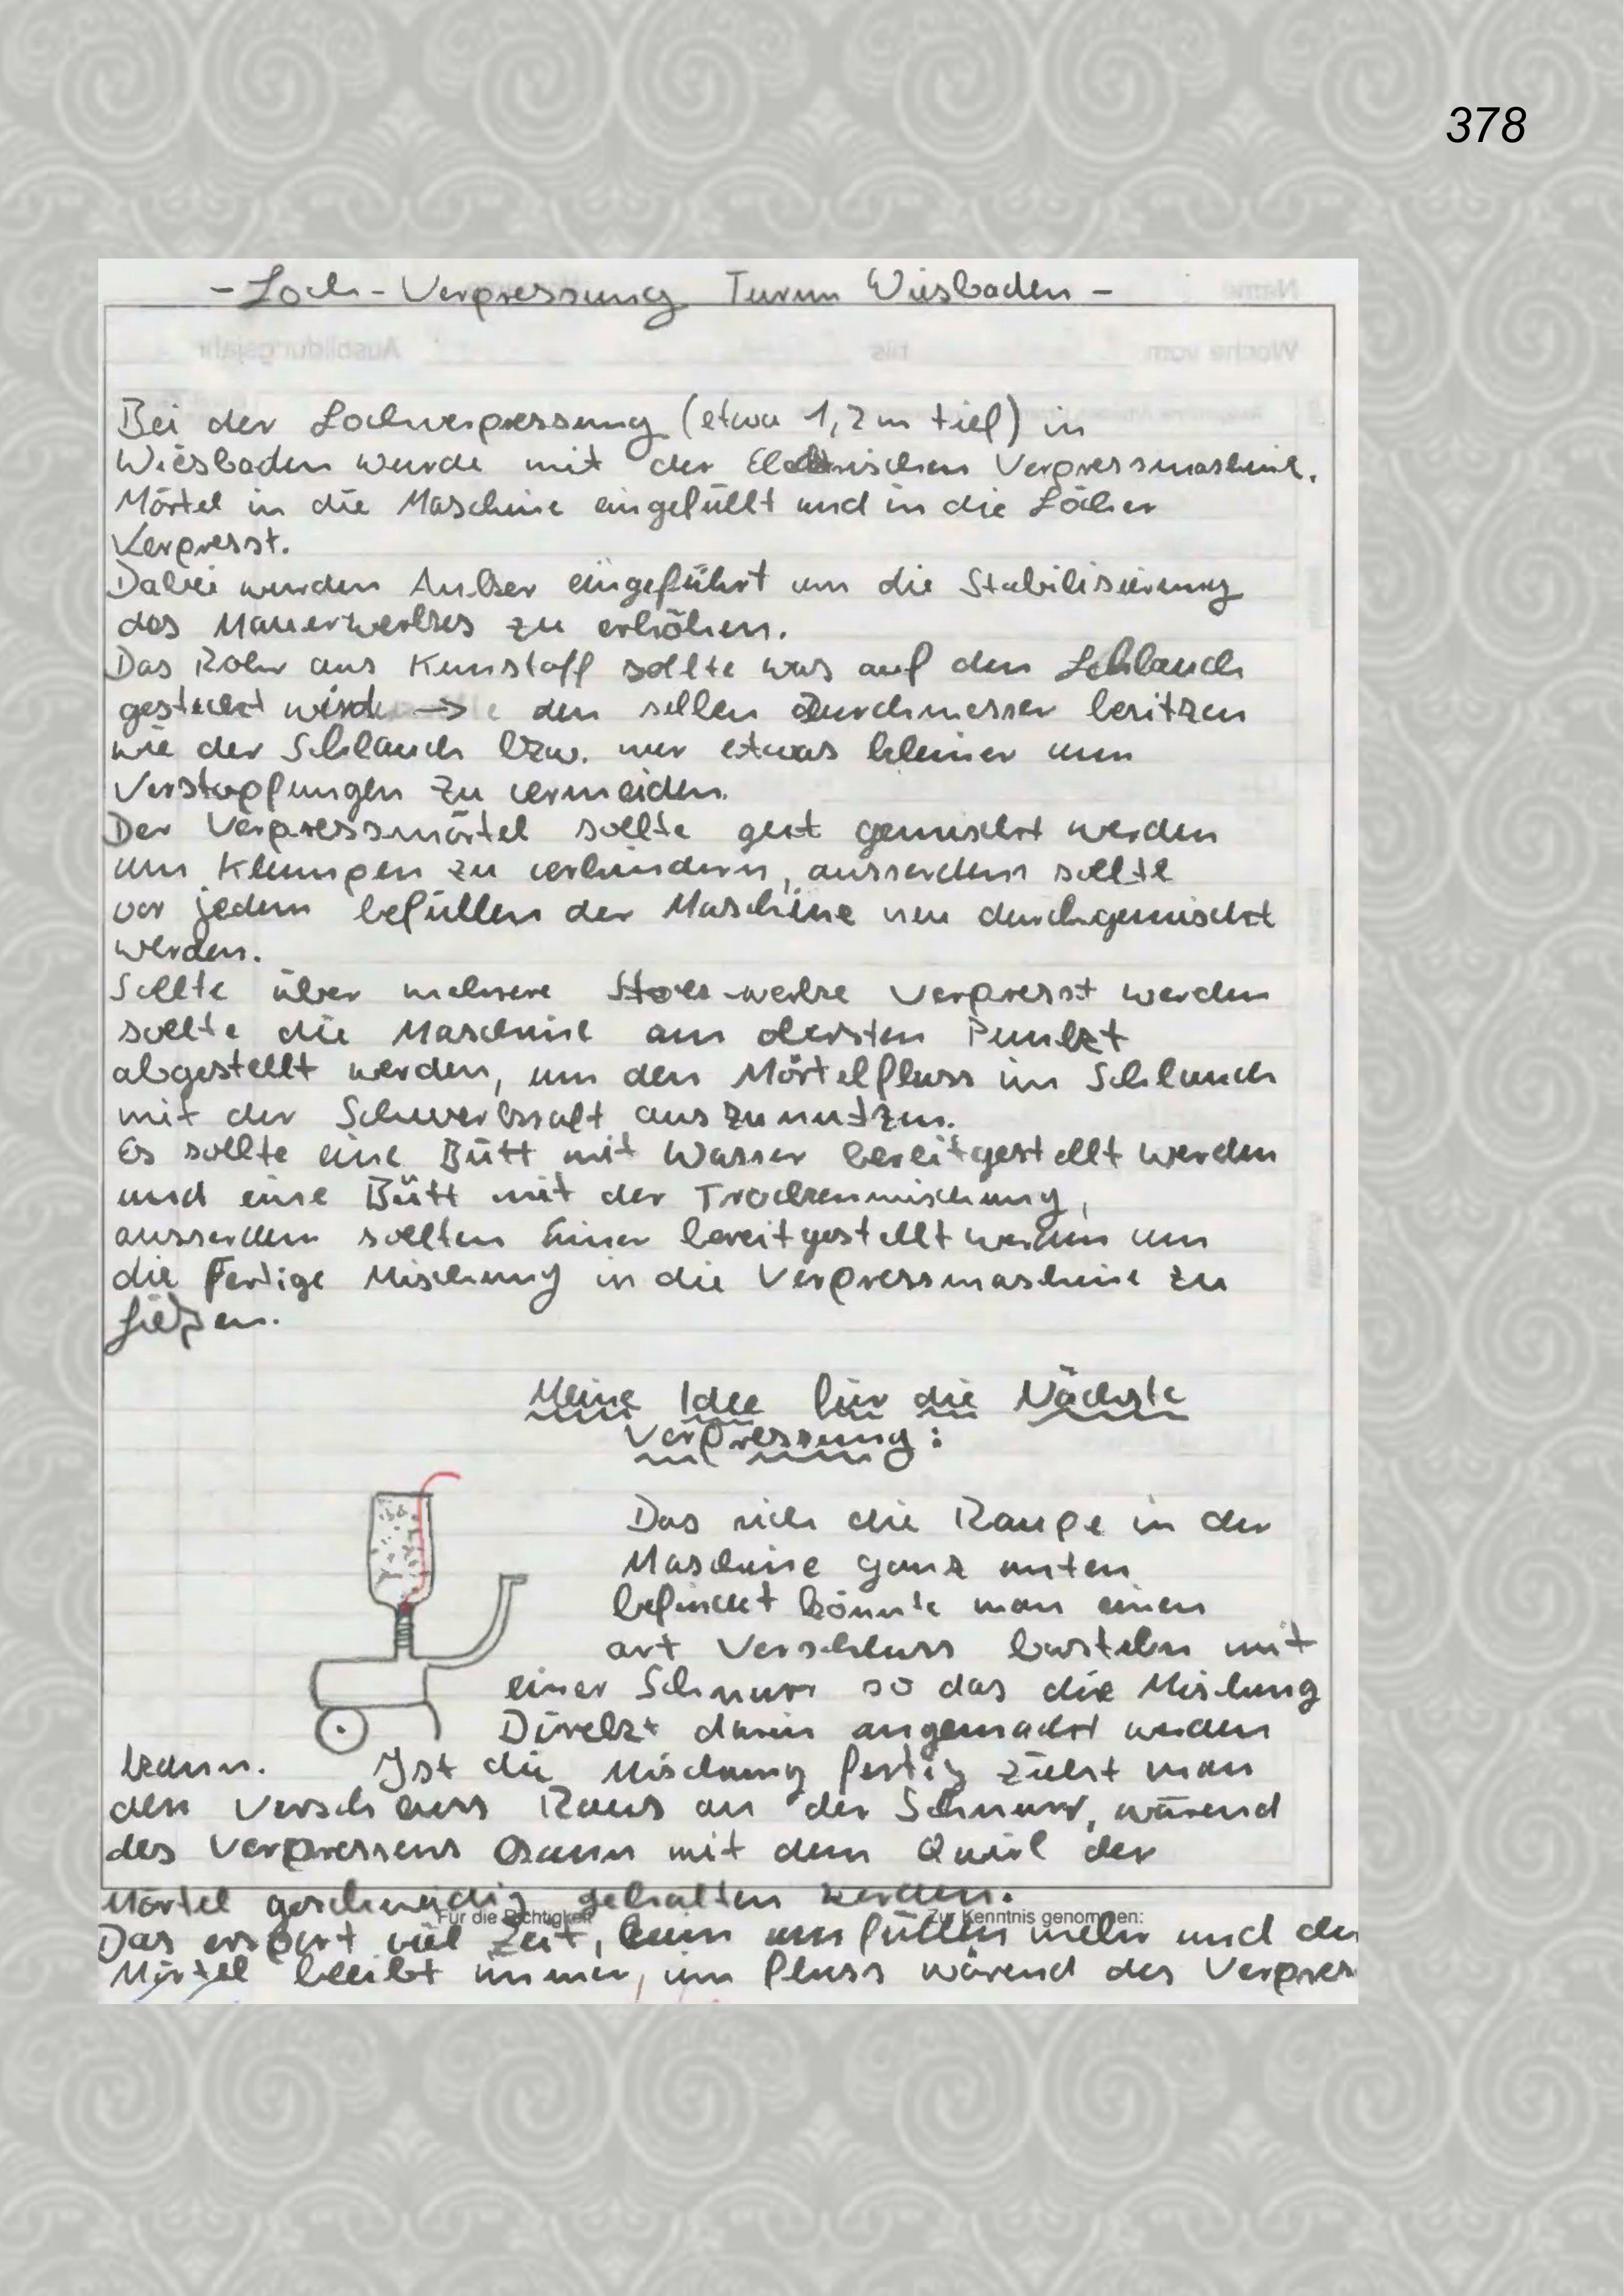 378
- Loch-Verpressung Turm Wiesbaden -
Name
Woche vom bis Ausbildungsjahr
Bei der Lochverpressung (etwa 1,2m tief) in
Wiesbaden wurde mit der Elektrischen Verpressmaschine.
Mörtel in die Maschine eingefüllt und in die Löcher
Verpresst.
Dabei wurden Anker eingeführt um die Stabilisierung
des Mauerwerkes zu erhöhen.
Das Rohr aus Kunstoff sollte was auf den Schlauch
gesteckt wird → den selben Durchmesser besitzen
wie der Schlauch bzw. nur etwas kleiner um
Verstopfungen zu vermeiden.
Der Verpressmörtel sollte gut gemischt werden
um Klumpen zu verhindern, ausserdem sollte
vor jedem befüllen der Maschine neu durchgemischt
werden.
Sollte über mehrere Stockwerke Verpresst werden
sollte die Maschine am obersten Punkt
abgestellt werden, um den Mörtelfluss im Schlauch
mit der Schwerkraft auszunutzen.
Es sollte eine Bütt mit Wasser bereitgestellt werden
und eine Bütt mit der Trockenmischung,
ausserdem sollten Eimer bereitgestellt werden um
die Fertige Mischung in die Verpressmaschine zu
gießen.
Meine Idee für die Nächste
Verpressung:
Das sich die Raupe in der
Maschine ganz unten
befindet könnte man einen
art Verschluss basteln mit
einer Schnurr so das die Mischung
Direkt darin angemacht werden
kann. Ist die Mischung fertig zieht man
den Verschluss Raus an der Schnurr, wärend
des Verpressens kann mit dem Quirl der
Mörtel geschmeidig gehalten werden.
Für die Richtigkeit Zur Kenntnis genommen:
Das erspart viel Zeit, kein umfüllen mehr und der
Mörtel bleibt immer, im fluss wärend des Verpres